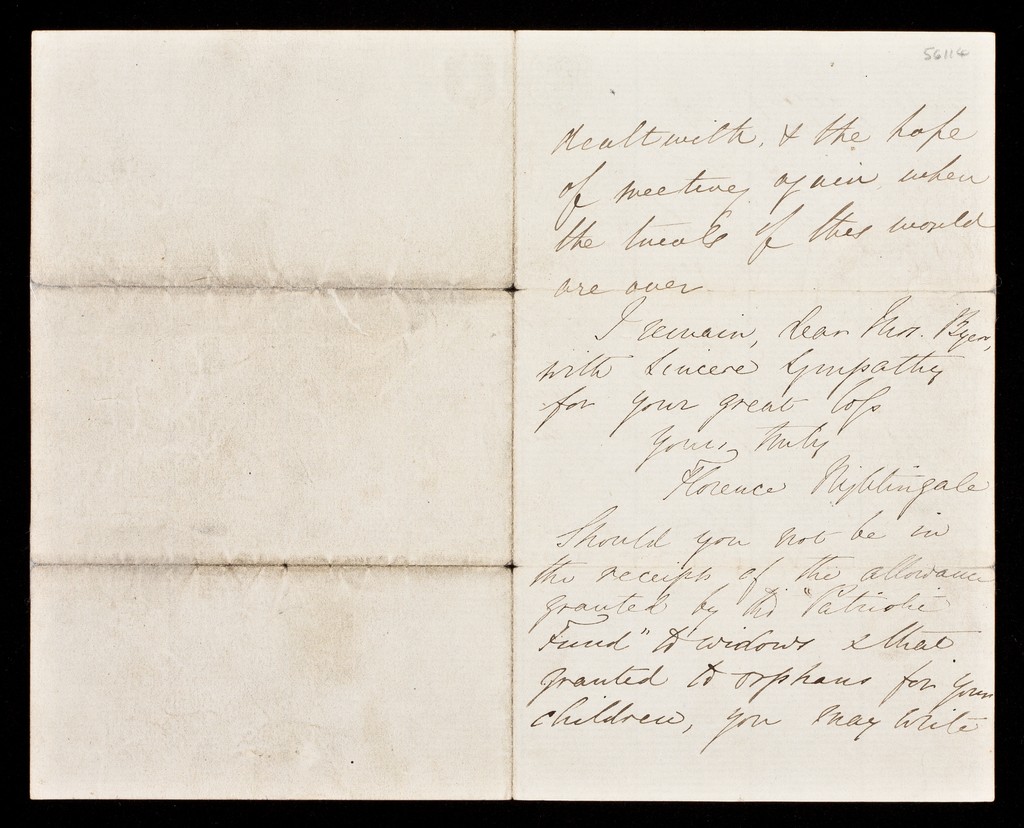 56114
dealt with, & the hope
of meeting again when
the trials of this world
are over
I remain, dear Mrs.
with sincere sympathy
for your great loss
yours truly
Florence Nightingale
Should you not be in
the receipt of the allowance
granted by the "Patriotic
Fund" to widows & that
granted to orphans for your
children, you may write